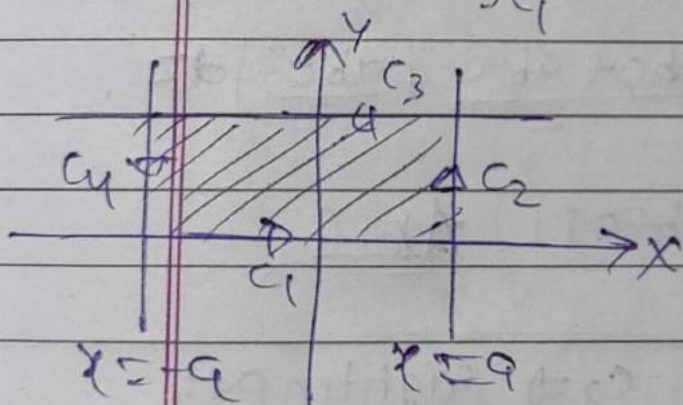 Y
C3
C4
C2
X
C1
x=-a x=a